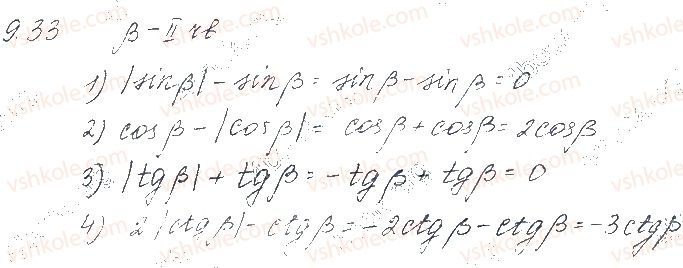 9.33 β – II чв
1) |sin β| – sin β = sin β – sin β = 0
2) cos β – |cos β| = cos β + cos β = 2cos β
3) |tg β| + tg β = –tg β + tg β = 0
4) 2|ctg β| – ctg β = –2ctg β – ctg β = –3ctg β